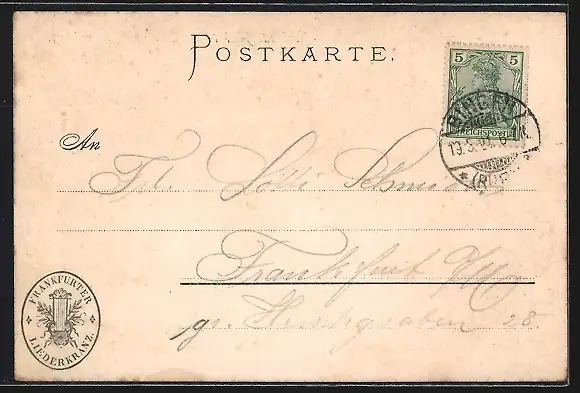 POSTKARTE.
5 5
REICHSPOST
BINGEN
An
Frl. Lotti Schmidt
Frankfurt a/M
gr. Hirschgraben 28.
FRANKFURTER
LIEDERKRANZ.